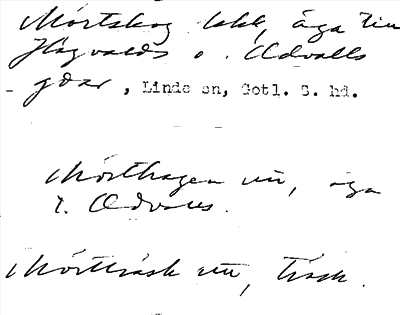 Mörtskog bkl, äga till
Hägvalds o. Ödvalls
gdar, Linde sn, Gotl. S. hd.
Mörthagen un, äga
t. Ödvalls.
Mörtträsk un, träsk.